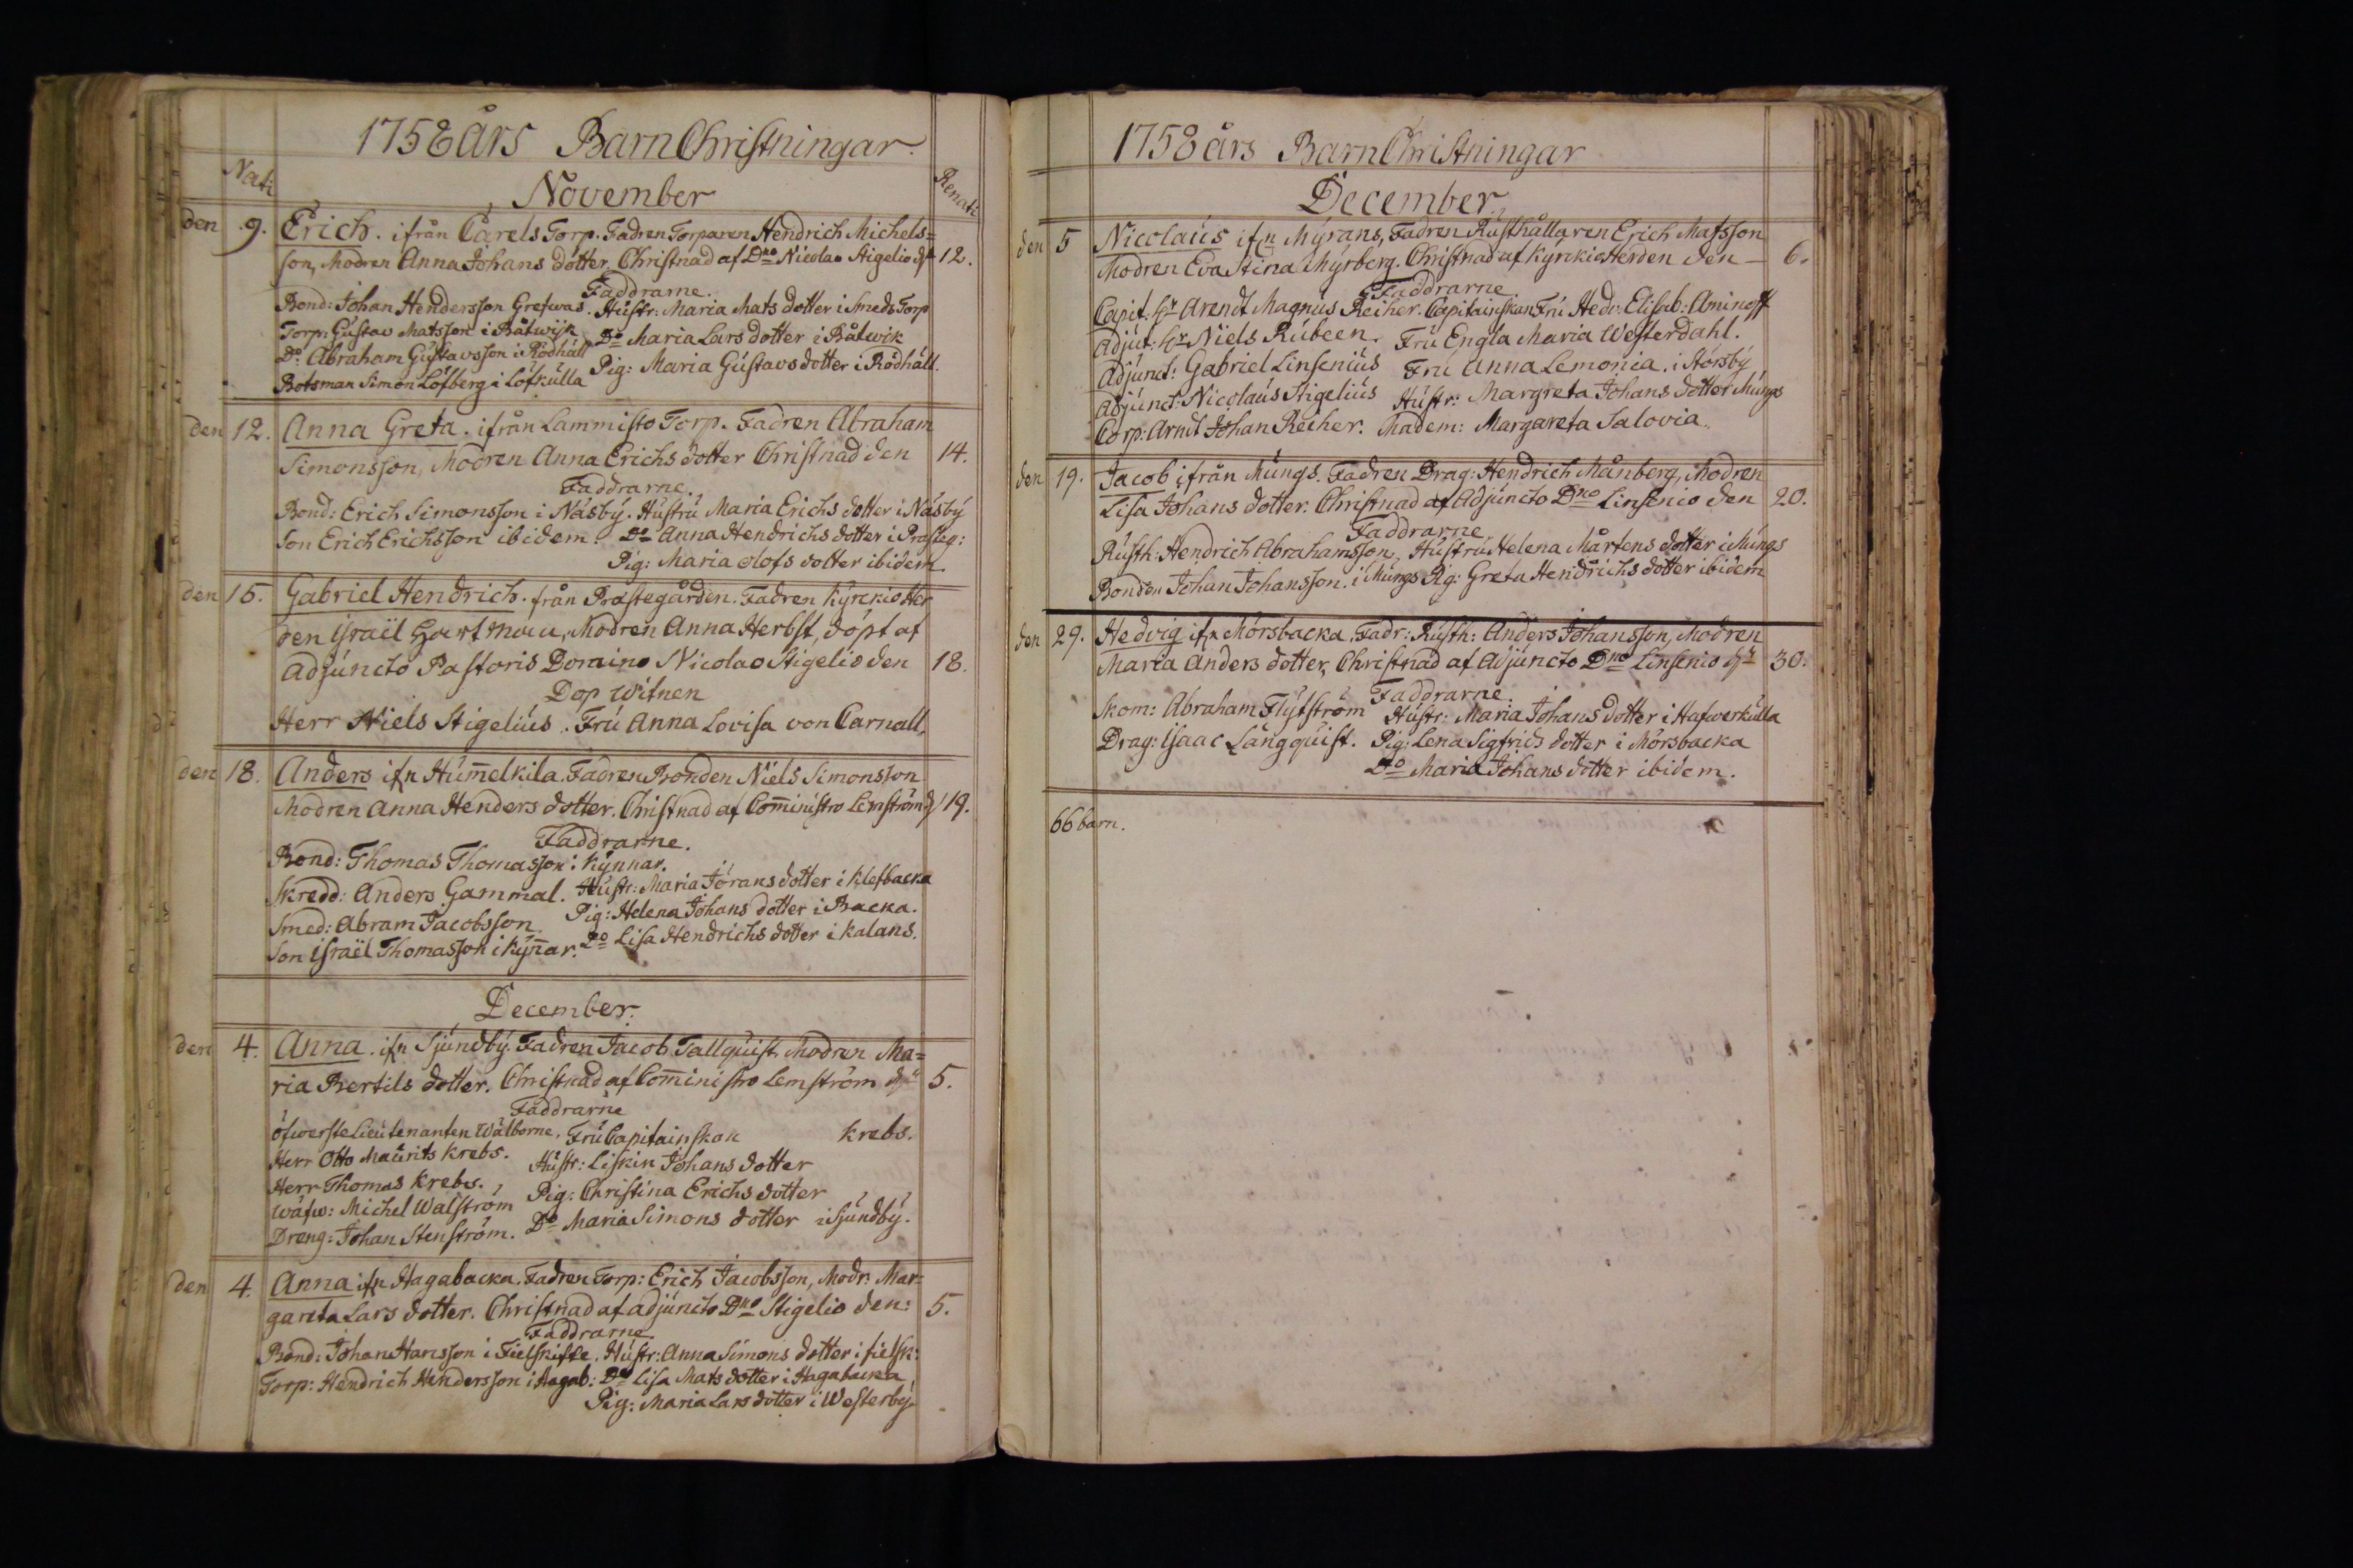 1758 års Barn Christningar.
Nati
November
Renati
den 9. Erich. ifrån Carels Torp. Fadren Torparen Hendrich Michels=
son, Modren Anna Johans dotter. Christnad af Dno Nicolao Stigelio dn 12.
Faddrarne.
Bond: Johan Hendersson Grefwas. Hustr: Maria Mats dotter i Smeds Torp
Torp: Gustav Matsson i Båtwijk Do Maria Lars dotter i Båtwik
Do Abraham Gustavsson i Rödhäll Pig: Maria Gustavs dotter i Rödhäll.
Botsman Simon Löfberg i Löfkulla
den 12. Anna Greta. ifrån Lammisto Torp. Fadren Abraham
Simonsson, Modren Anna Erichs dotter Christnad den 14.
Faddrarne.
Bond: Erich Simonsson i Näsby. Hustru Maria Erichs dotter i Näsby
Son Erich Erichsson ibidem. Do Anna Hendrichs dotter i Prästeg:
Pig: Maria Olofs dotter ibidem
den 15. Gabriel Hendrich. från Prästegården. Fadren Kyrckio Her
den Israël Hartman, Modren Anna Herbst, döpt af
Adjuncto Pastoris Domino Nicolao Stigelio den 18.
Dop Witnen
Herr Niels Stigelius. Fru Anna Lovisa von Carnall.
den 18. Anders ifn Hum̅elkila. Fadren Bonden Niels Simonsson
Modren Anna Henders dotter. Christnad af Com̅inistro Lemström d 19.
Faddrarne.
Bond: Thomas Thomasson i Kynnar.
Skredd: Anders Gammal. Hustr: Maria Jörans dotter i Klefbacka
Smed: Abram Jacobsson. Pig: Helena Johans dotter i Backa.
Son Israël Thomasson i Kyn̅ar. Do Lisa Hendrichs dotter i Kalans.
December.
den 4. Anna. ifn Sjundby. Fadren Jacob Tallquist Modren Ma=
ria Bertils dotter. Christnad af Com̅inistro Lemström dn 5.
Faddrarne
öfwerste Lieutenanten Wälborne. Fru Capitainskan Krebs.
Herr Otto Maurits Krebs. Hustr: Liskin Johans dotter
Herr Thomas Krebs. Pig: Christina Erichs dotter
Wäfw: Michel Walström Do Maria Simons dotter i Sjundby.
Dreng: Johan Stenström.
den 4. Anna ifn Hagabacka. Fadren Torp: Erich Jacobsson, Modr: Mar=
gareta Lars dotter. Christnad af adjuncto Dno Stigelio den: 5.
Faddrarne.
Bond: Johan Hansson i Fielskifte. Hustr: Anna Simons dotter i fielsk:
Torp: Hendrich Hendersson i Hagab: Do Lisa Mats dotter i Hagabacka
Pig: Maria Lars dotter i Westerby.
1758 års Barn Christningar
December.
den 5 Nicolaus ifn Myrans, Fadren Rusthållaren Erich Matsson
Modren Eva Stina Myrberg. Christnad af Kyrckio Herden den 6.
Faddrarne.
Capit: Hr Arendt Magnus Reiher. Capitainskan Fru Hedv: Elisab: Aminoff
Adjut: Hr Niels Rubeen. Fru Engla Maria Westerdahl.
Adjunct: Gabriel Linsenius Fru Anna Lemonia. i Storsby
Adjunct: Nicolaus Stigelius Hustr: Margreta Johans dotter Mungs
Corp: Arndt Johan Reiher. Madem: Margareta Salovia.
den 19. Jacob ifrån Mungs. Fadren Drag: Hendrich Månberg, Modren
Lisa Johans dotter. Christnad af Adjuncto Dno Linsenio den 20.
Faddrarne
Rusth: Hendrich Abrahamsson, Hustru Helena Mårtens dotter i Mungs
Bonden Johan Johansson. i Mungs Pig: Greta Hendrichs dotter ibidem
den 29. Hedvig ifn Mörsbacka. Fadr: Rusth: Anders Johansson, Modren
Maria Anders dotter, Christnad af Adjuncto Dno Linsenio dn 30.
Faddrarne.
Skom: Abraham Flytström Hustr: Maria Johans dotter i Hafwerkulla
Drag: Isaac Långquist. Pig: Lena Sigfrids dotter i Mörsbacka
Do Maria Johans dotter ibidem.
66 barn.